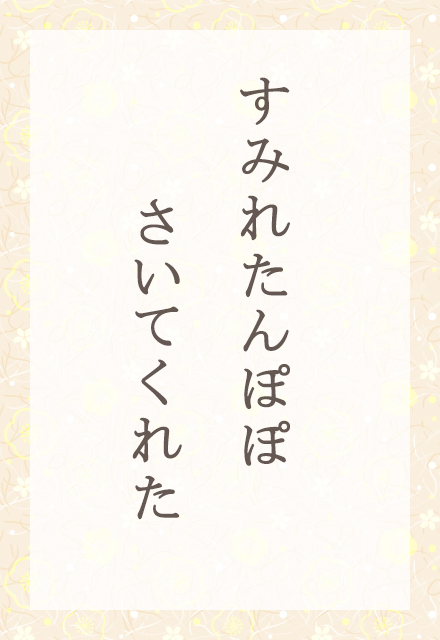 すみれたんぽぽ
さいてくれた